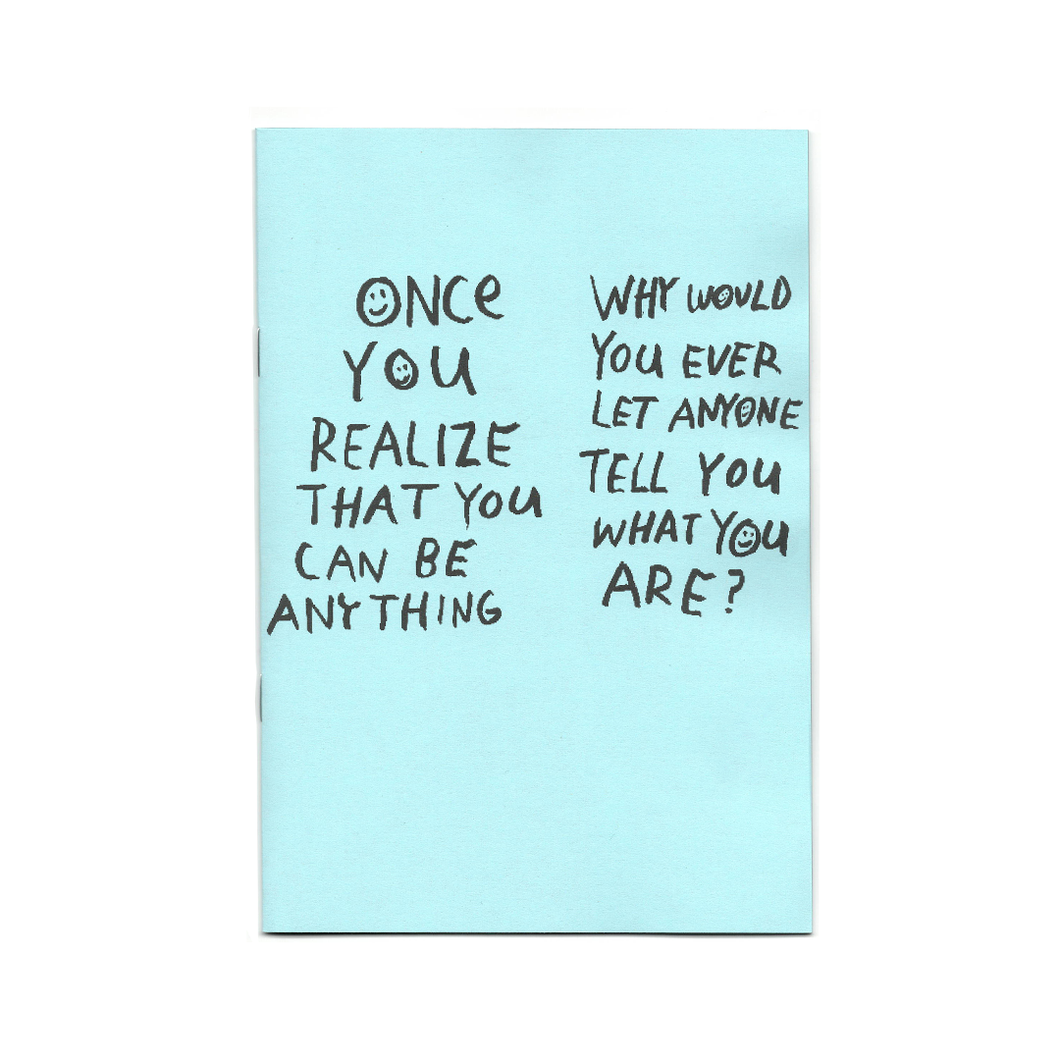 ONCe
YOU
REALIZE
THAT YOU
CAN BE
ANYTHING
WHY WOULD
YOU EVER
LET ANYONE
TELL YOU
WHAT YOU
ARE?